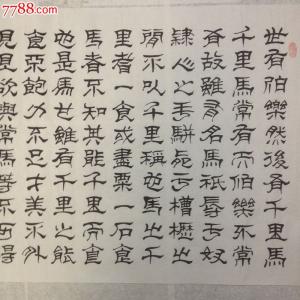 7788.com
世有伯樂然後有千里馬
千里馬常有而伯樂不常
有故雖有名馬祇辱于奴
隸人之手駢死于槽櫪之
間不以千里稱也馬之千
里者一食或盡粟一石食
馬者不知其能千里而食
也是馬也雖有千里之能
食不飽力不足才美不外
見且欲與常馬等不可得